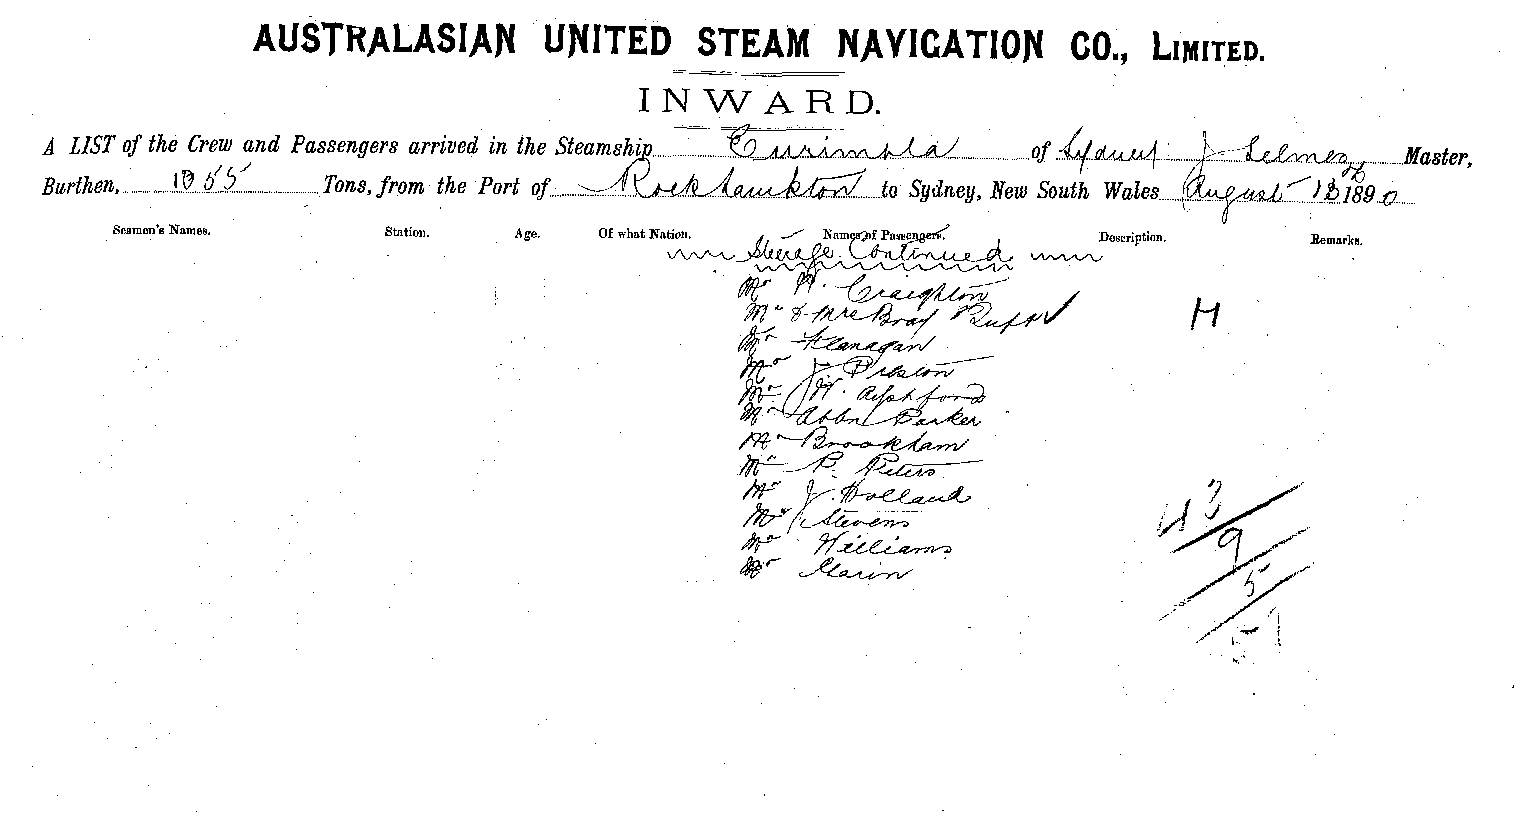 AUSTRALASIAN UNITED STEAM NAVIGATION CO., LIMITED.
INWARD.
A LIST of the Crew and Passengers arrived in the Steamship Eurimbla of Sydney J Selmes, Master,
Burthen, 1055 Tons, from the Port of Rockhamkton to Sydney, New South Wales August 13 1890
Seamen's Names. Station. Age. Of what Nation. Names of Passengers. Description. Remarks.
Steerage Continued
Mr H. Craighton
Mr & Mrs Bray H
Mr Flanagan
Mr J Preston
Mr H. Ashford
Mr Parker
Mr Brookham
Mr P. Peters
Mr J. Holland
Mr Stevens
Mr Williams
Mr
43
9
5
57